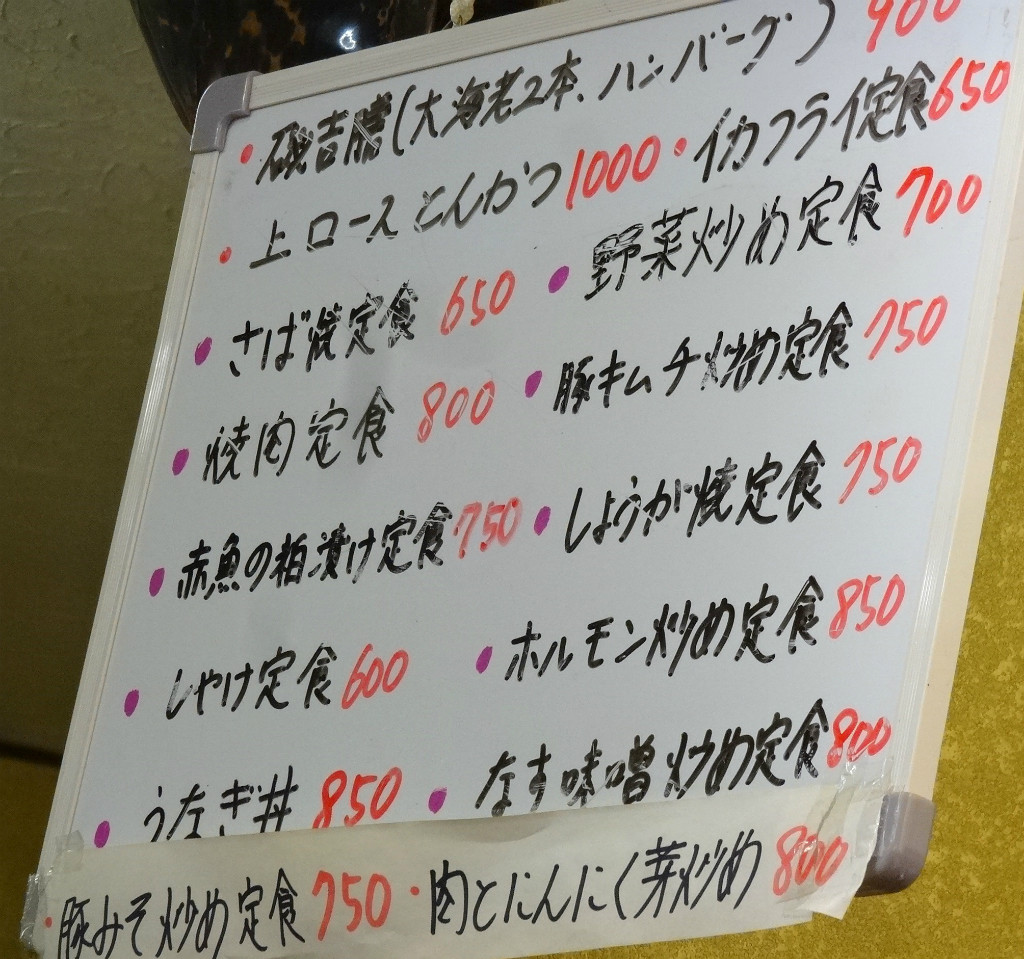 • 磯吉膳(大海老2本、ハンバーグ) 900
• 上ロースとんかつ 1000 • イカフライ定食 650
• さば焼定食 650 • 野菜炒め定食 700
• 焼肉定食 800 • 豚キムチ炒め定食 750
• 赤魚の粕漬け定食 750 • しょうが焼定食 750
• しゃけ定食 600 • ホルモン炒め定食 850
• うなぎ丼 850 • なす味噌炒め定食 800
• 豚みそ炒め定食 750 • 肉とにんにく芽炒め 800